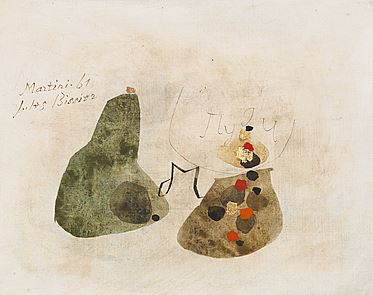 Martini. 61
Jules Bissier